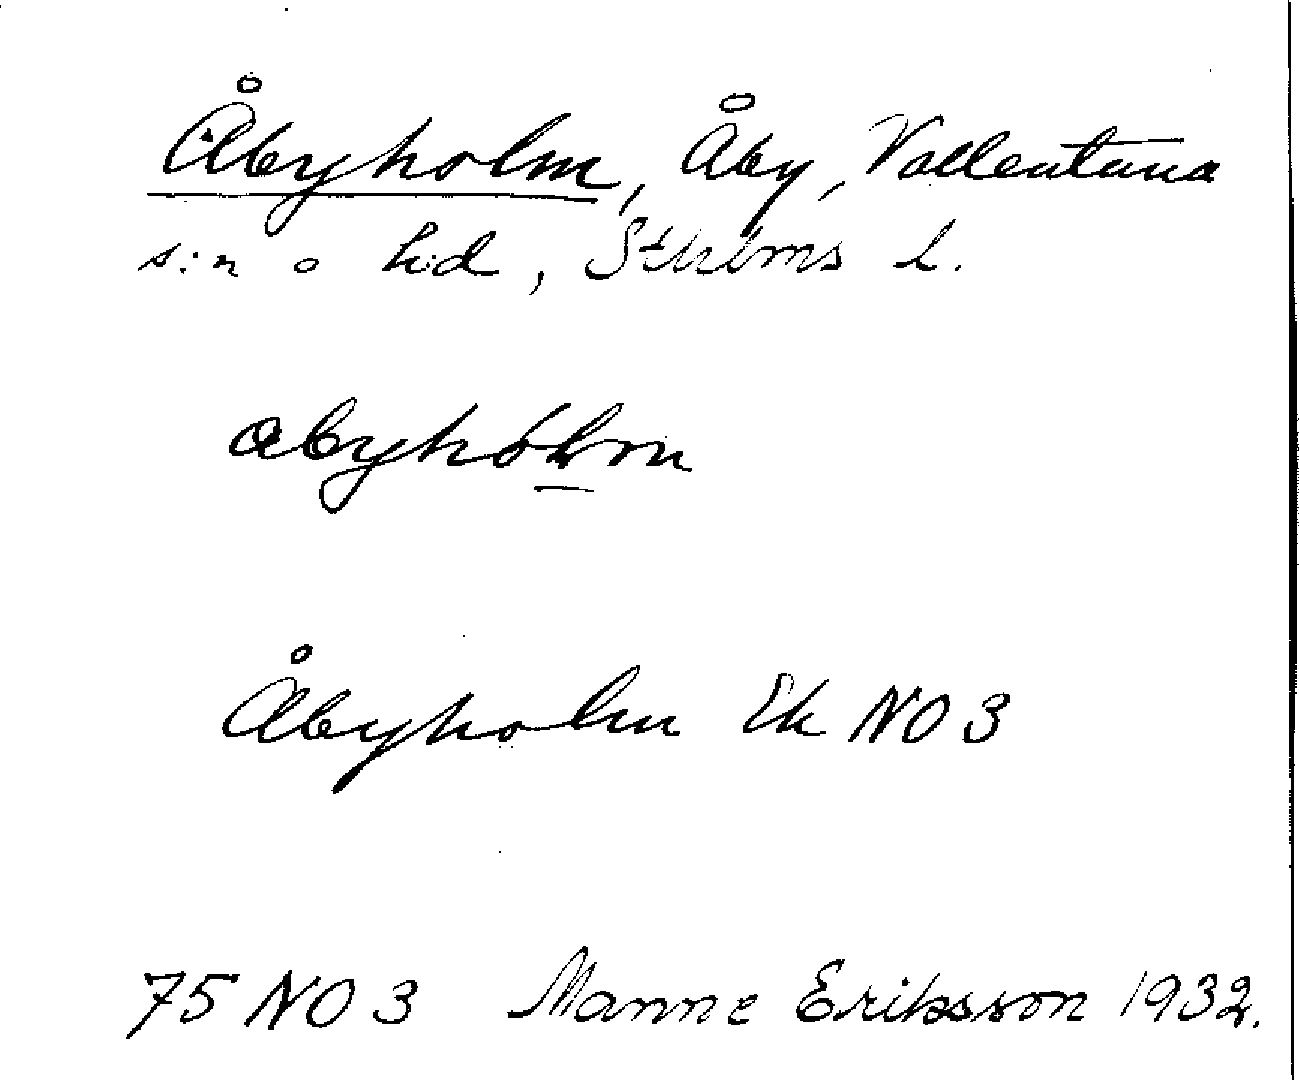 Åbyholm, Åby, Vallentuna
s:n o h:d, Sthlms l.
abyhólm
Åbyholm Ek NO 3
75 NO 3 Manne Eriksson 1932.